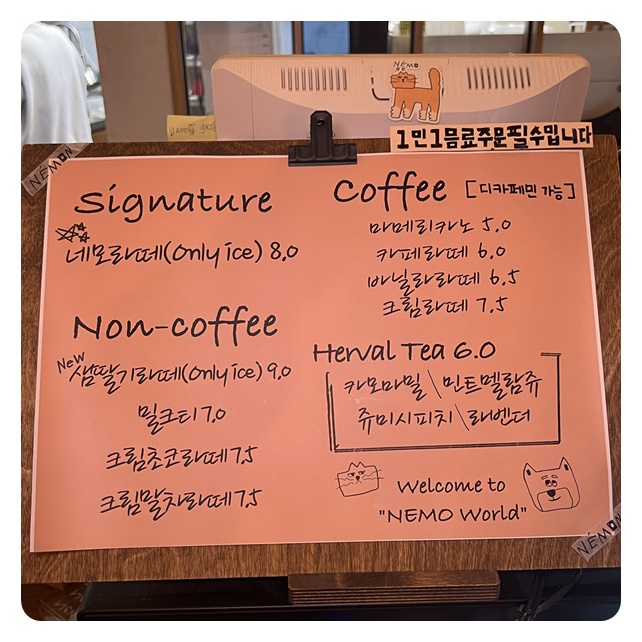 NEMO
NE
1인 1음료주문필수입니다
NEMON
Signature
네모라떼(Only ice) 8.0
Non-coffee
New
생딸기라떼(Only ice) 9.0
밀크티 7.0
크림초코라떼 7.5
크림말차라떼 7.5
Coffee [디카페인 가능]
아메리카노 5.0
카페라떼 6.0
바닐라라떼 6.5
크림라떼 7.5
Herval Tea 6.0
카모마일 \ 민트멜랑쥬
쥬이시피치 \ 라벤더
Welcome to
"NEMO World"
NEMON